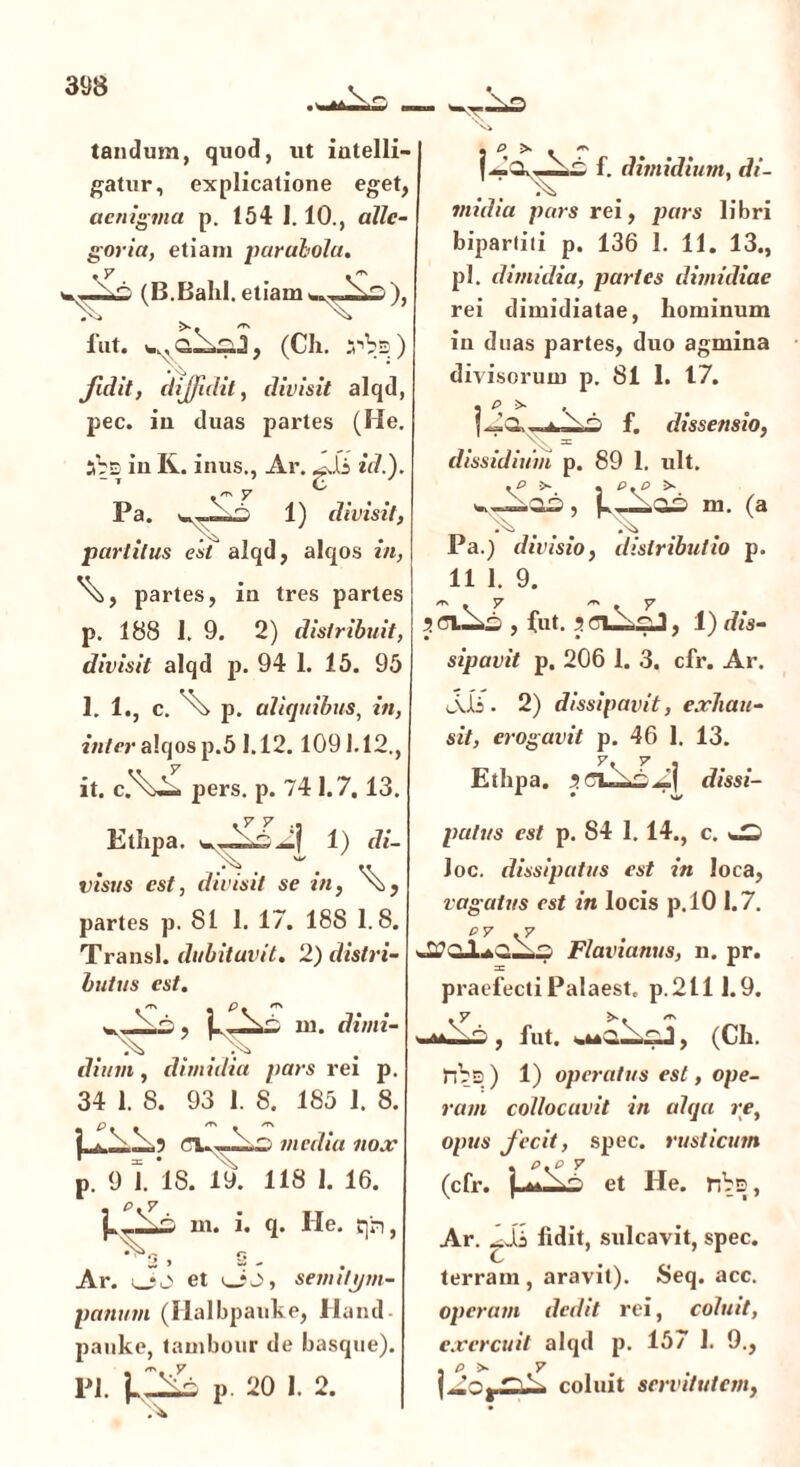 398
ܦܠܚ. — ܦܠܓ
tandum, quod, ut intelli-
gatur, explicatione eget,
aenigma p. 154 l. 10., alle-
goria, etiam parabola.
ܦܠܓ (B.Bahl. etiam ܦܠܓ),
fut. ܢܦܠܘܓ, (Ch. פְּלַג)
fidit, diffidit, divisit alqd,
pec. in duas partes (He.
פלג in K. inus., Ar. فلج id.).
Pa. ܦܠܓ 1) divisit,
partitus est alqd, alqos in,
ܠ, partes, in tres partes
p. 188 l. 9. 2) distribuit,
divisit alqd p. 94 l. 15. 95
l. 1., c. ܠ p. aliquibus, in,
inter alqos p.5 l.12. 109 l.12.,
it. c. ܥܠ pers. p. 74 l.7. 13.
Ethpa. ܐܬܦܠܓ 1) di-
visus est, divisit se in, ܠ,
partes p. 81 l. 17. 188 l. 8.
Transl. dubitavit. 2) distri-
butus est.
ܦܠܓ, ܦܠܓܐ m. dimi-
dium, dimidia pars rei p.
34 l. 8. 93 l. 8. 185 l. 8.
ܦܠܓܗ ܕܠܠܝܐ media nox
p. 9 l. 18. 19. 118 l. 16.
ܦܠܓܐ m. i. q. He. תֹּף,
Ar. دف et دف, semitym-
panum (Halbpauke, Hand-
pauke, tambour de basque).
Pl. ܦܠܓܐ p. 20 l. 2.
ܦܠܓܘܬܐ f. dimidium, di-
midia pars rei, pars libri
bipartiti p. 136 l. 11. 13.,
pl. dimidia, partes dimidiae
rei dimidiatae, hominum
in duas partes, duo agmina
divisorum p. 81 l. 17.
ܦܠܝܓܘܬܐ f. dissensio,
dissidium p. 89 l. ult.
ܦܘܠܓ, ܦܘܠܓܐ m. (a
Pa.) divisio, distributio p.
11 l. 9.
ܦܠܗܕ, fut. ܢܦܠܗܕ, 1) dis-
sipavit p. 206 l. 3. cfr. Ar.
فلذ. 2) dissipavit, exhau-
sit, erogavit p. 46 l. 13.
Ethpa. ܐܬܦܠܗܕ dissi-
patus est p. 84 l. 14., c. ܒ
loc. dissipatus est in loca,
vagatus est in locis p.10 l.7.
ܦܠܘܝܢܘܣ Flavianus, n. pr.
praefecti Palaest. p.211 l.9.
ܦܠܚ, fut. ܢܦܠܘܚ, (Ch.
פְּלַח) 1) operatus est, ope-
ram collocavit in alqa re,
opus fecit, spec. rusticum
(cfr. ܦܠܚܐ et He. פלח,
Ar. فلح fidit, sulcavit, spec.
terram, aravit). Seq. acc.
operam dedit rei, coluit,
exercuit alqd p. 157 l. 9.,
ܥܒܕܘܬܐ coluit servitutem,